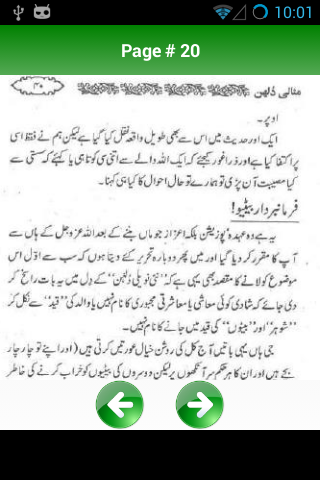 10:01
Page # 20
مثالی دُلھن
۲۰
اوپر۔
ایک اور حدیث میں اس سے بھی طویل واقعہ نقل کیا گیا ہے لیکن ہم نے فقط اسی
پر اکتفا کیا ہے اور ذرا غور کیجئے کہ ایک اللہ والے سے اتنی سی کوتاہی یا کہئے کہ سستی سے
کیا مصیبت آن پڑی تو ہمارے تو حال احوال کا کیا ہی کہنا۔
فرمانبردار بیٹیو!
یہ ہے وہ عہدہ’ پوزیشن بلکہ اعزاز جو ماں بننے کے بعد اللہ عزوجل کے ہاں سے
آپ کا مقرر کر دیا گیا اور میں پھر دوبارہ تحریر کئے دیتا ہوں کہ سب سے اوّل اس
موضوع کو لانے کا مقصد بھی یہی ہے کہ ’’نئی نویلی دُلھن‘‘ کے دِل میں یہ بات راسخ کر
دی جائے کہ شادی کوئی معاشی یا معاشرتی مجبوری کا نام نہیں یا والد کی ’’قید‘‘ سے نکل کر
’’شوہر‘‘ اور ’’بیٹوں‘‘ کی قید میں جانے کا نام نہیں۔
جی ہاں یہی باتیں آج کل کی روشن خیال عورتیں کرتی ہیں (اور اپنے تو چار چار
بچے ہیں اور ان کا ہر حکم سر آنکھوں پر لیکن دوسروں کی بیٹیوں کو خراب کرنے کی خاطر